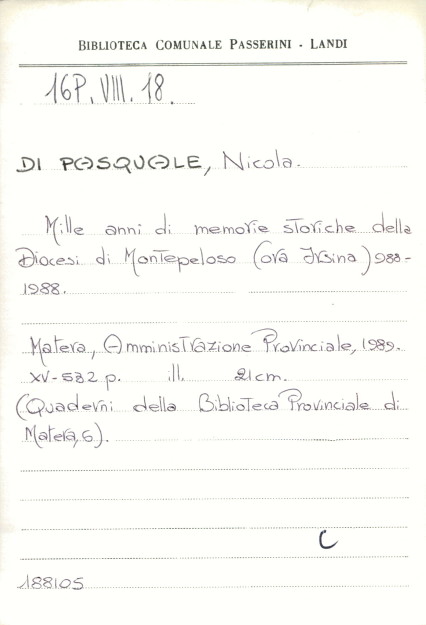 BIBLIOTECA COMUNALE PASSERINI - LANDI
16P. VIII. 18.
DI PASQUALE, Nicola.
Mille anni di memorie storiche della
Diocesi di Montepeloso (ora Irsina) 988-
1988.
Matera, Amministrazione Provinciale, 1989.
XV-532 p. ill. 21 cm.
(Quaderni della Biblioteca Provinciale di
Matera, 6).
C
188105